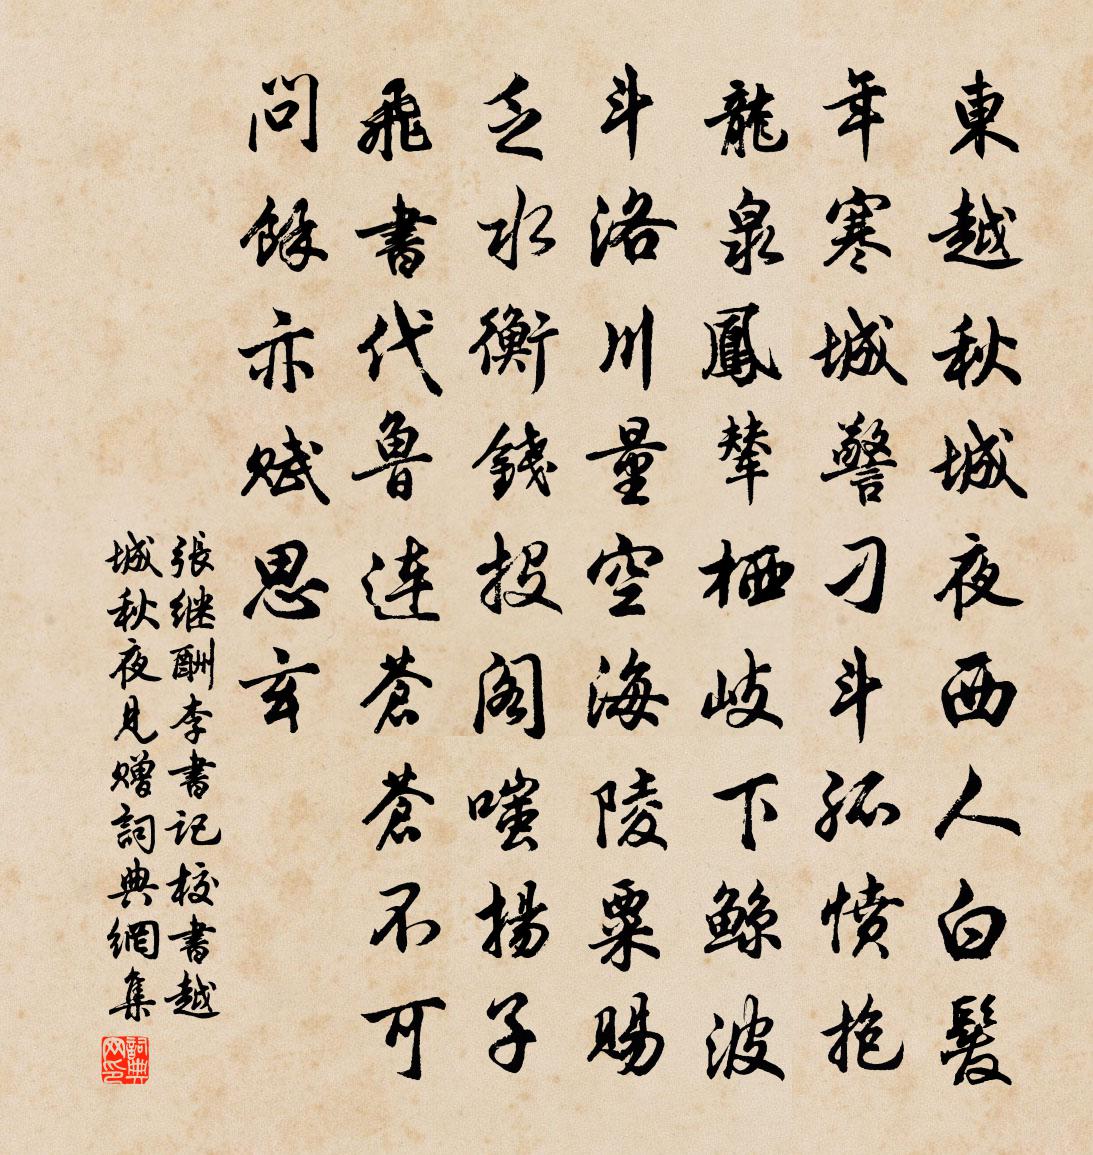 東越秋城夜西人白髮
年寒城警刁斗孤憤抱
龍泉鳳輦栖岐下鯨波
斗洛川量空海陵粟賜
乏水衡錢投閣嗤揚子
飛書代魯連蒼蒼不可
問餘亦賦思玄
張继酬李書记校書越
城秋夜見贈詞典網集
詞典网印